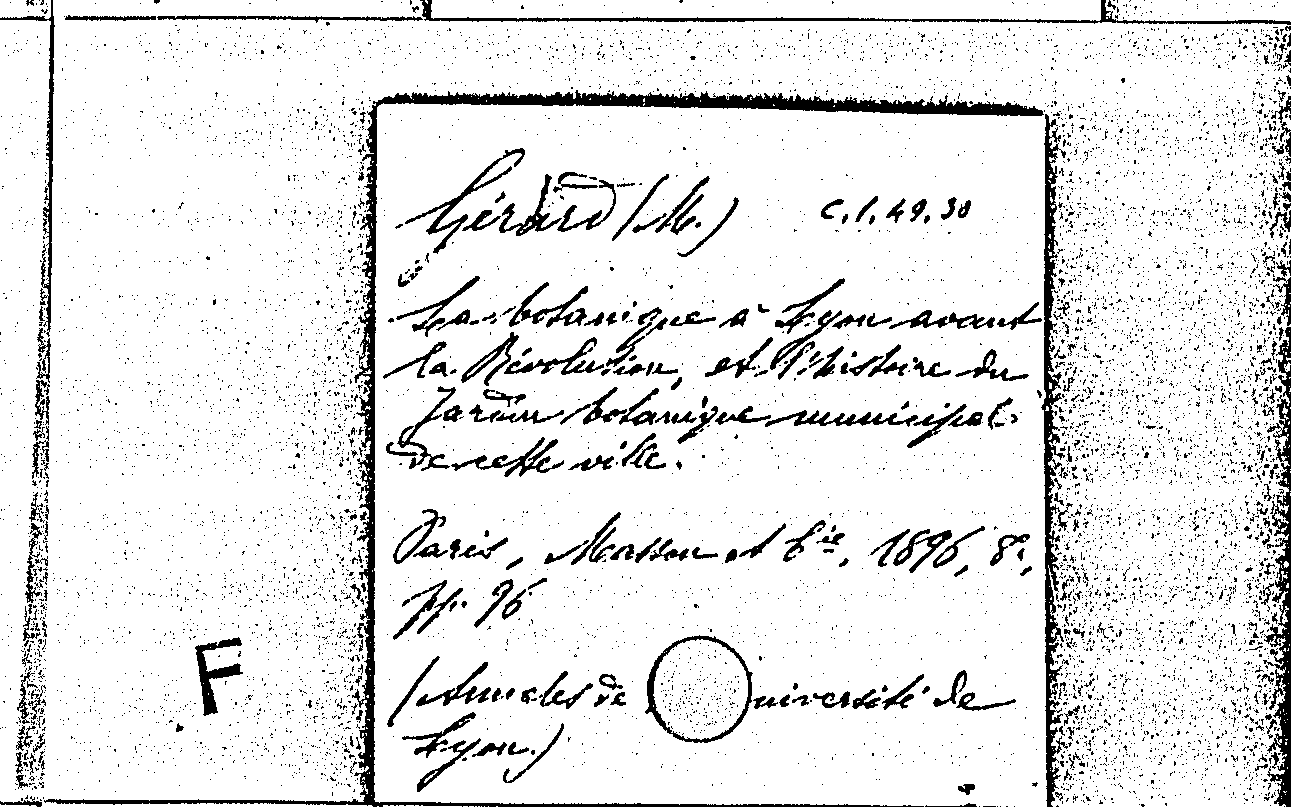 Gérard (M.) C.1.49.30
La botanique à Lyon avant
la Révolution, et l'histoire du
Jardin botanique municipal
de cette ville.
Paris, Masson et Cie, 1896, 8°,
pp. 96
F
(Annales de niversité de
Lyon.)